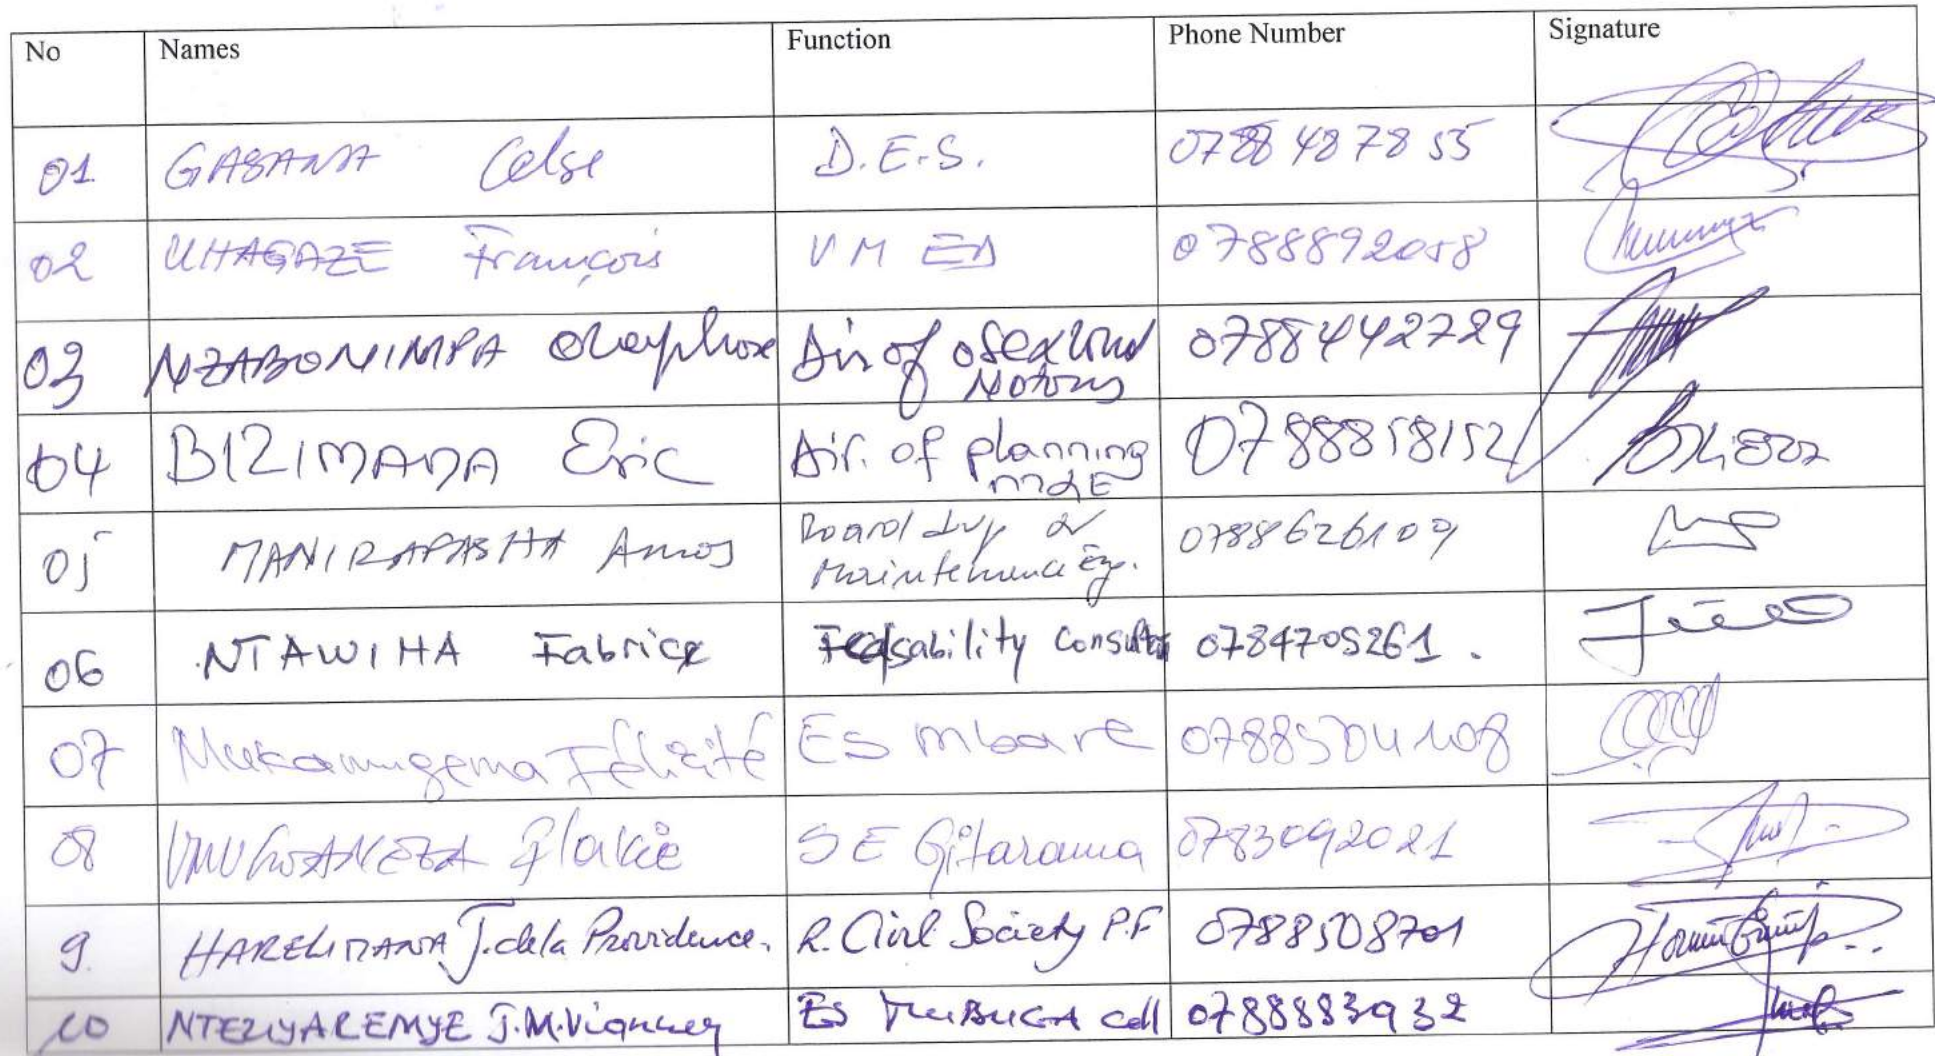 No Names Function Phone Number Signature
01 GASANA Celse D.E.S. 0788487855
02 UHAGAZE François VM ED 0788892058
03 NZABONIMPA Dir of 0788442729
04 BIZIMANA Eric Dir. of planning M&E 0788858152
05 MANIRAFASHA Amos Board Sup & Maintenance Eng. 0788626109
06 NTAWIHA Fabrice Feasability Consultant 0784705261.
07 Mukamugema Félicité ES Mbare 0788504108
08 UMUKWANEZA SE Gitarama 0783092021
9. HARELIMANA J. de la Providence. R. Civil Society P.F 0788508701
10 NTEZIYAREMYE J.M.Vianney ES cell 0788883932